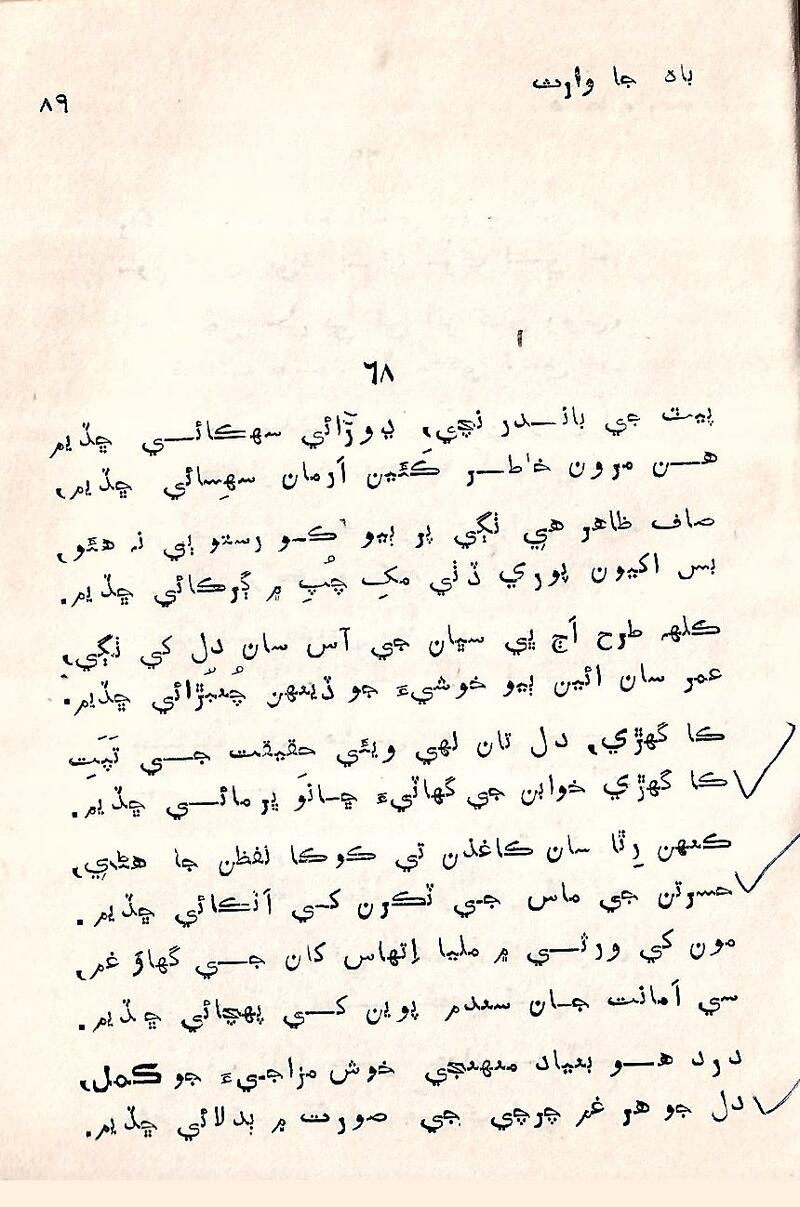 باه جا وارث
٨٩
٦٨
پيٽ جي بانـــدر نچي، ڊوڙائي سهڪائـــي ڇڏيم
هـــن مرون خاطـــر ڪَئين اَرمان سهسائي ڇڏيم،
صاف ظاهر هئي ٺڳي پر ٻيو ڪــو رستو ئي نہ هئو،
بس اکيون پوري ڏٺي مکِ چُپِ ۾ ڳرڪائي ڇڏيم.
ڪلهہ طرح اَڄ ڀي سڀان جي آس سان دل کي ٺڳي،
عمر سان ائين ٻيو خوشيءَ جو ڏينهن چُنبڙائي ڇڏيم.
ڪا گهڙي، دل تان لهي ويئي حقيقت جـــي تَپَتِ
ڪا گهڙي خوابن جي گهاٽيءَ ڇــانوَ ڀرمائـــي ڇڏيم.
ڪنهن رِٿا سان ڪاغذن تي ڪوڪا لفظن جا هڻي،
حسرتن جي ماس جــي ٽڪرن کــي اَٽڪائي ڇڏيم.
مون کي ورثـــي ۾ مليا اِتهاس کان جـــي گهاوَ غم،
سي اَمانت جــان سندم پوين کـــي پهچائي ڇڏيم.
درد هـــو بنياد منهنجي خوش مزاجــيءَ جو ڪمل،
دل جو هر غم چرچي جي صورت ۾ بدلائي ڇڏيم.